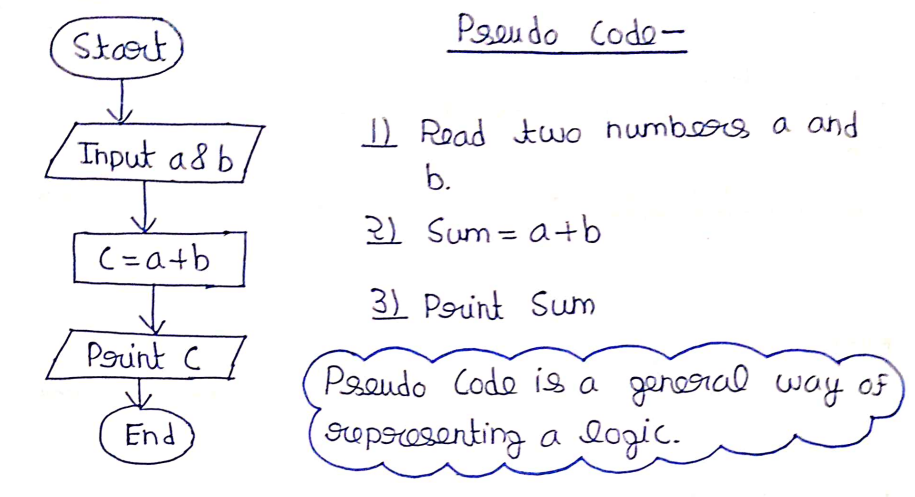 Start
Input a & b
C = a+b
Print C
End
Pseudo Code-
1) Read two numbers a and
b.
2) Sum = a+b
3) Print Sum
Pseudo Code is a general way of
representing a logic.